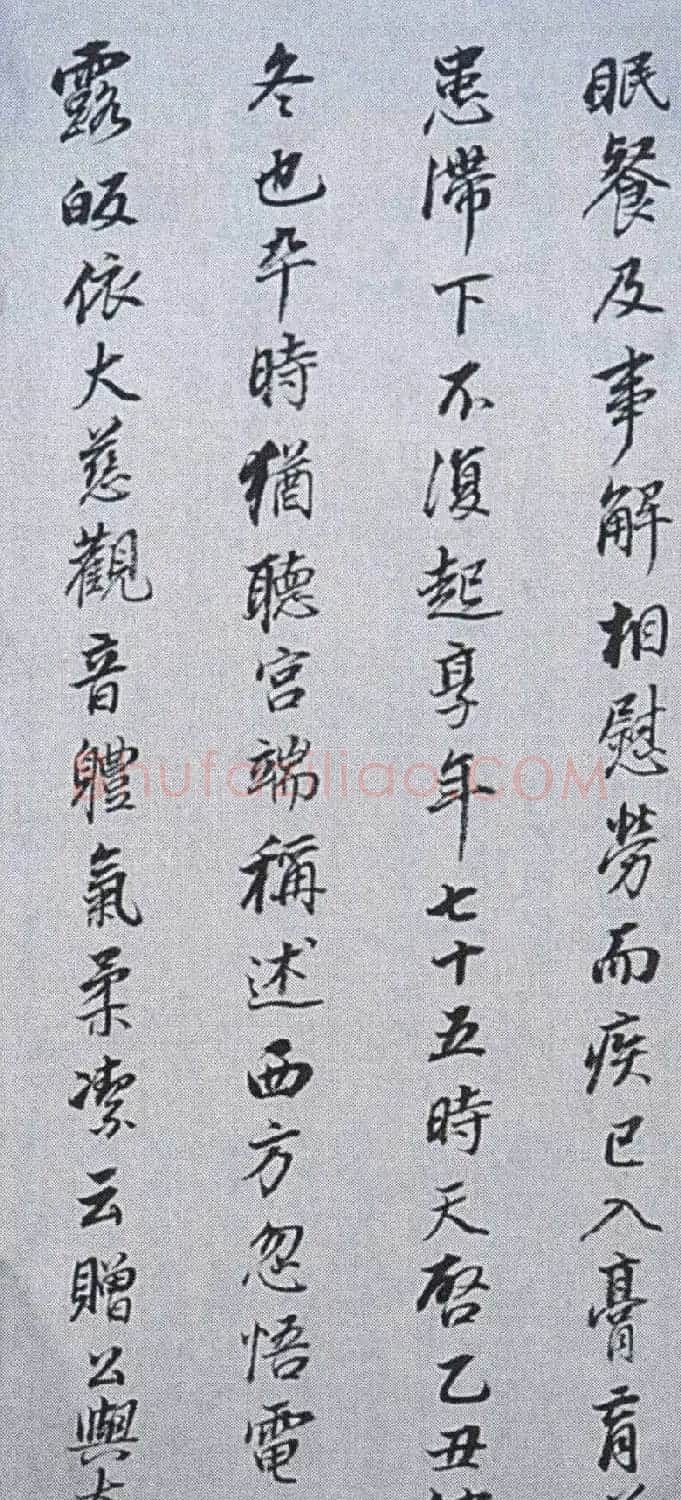 眠餐及事解相慰勞而疾已入膏肓
患滯下不復起享年七十五時天啓乙丑
冬也卒時猶聽宮端稱述西方忽悟電
露皈依大慈觀音體氣柔潔云贈公與
Shufaziliao.COM